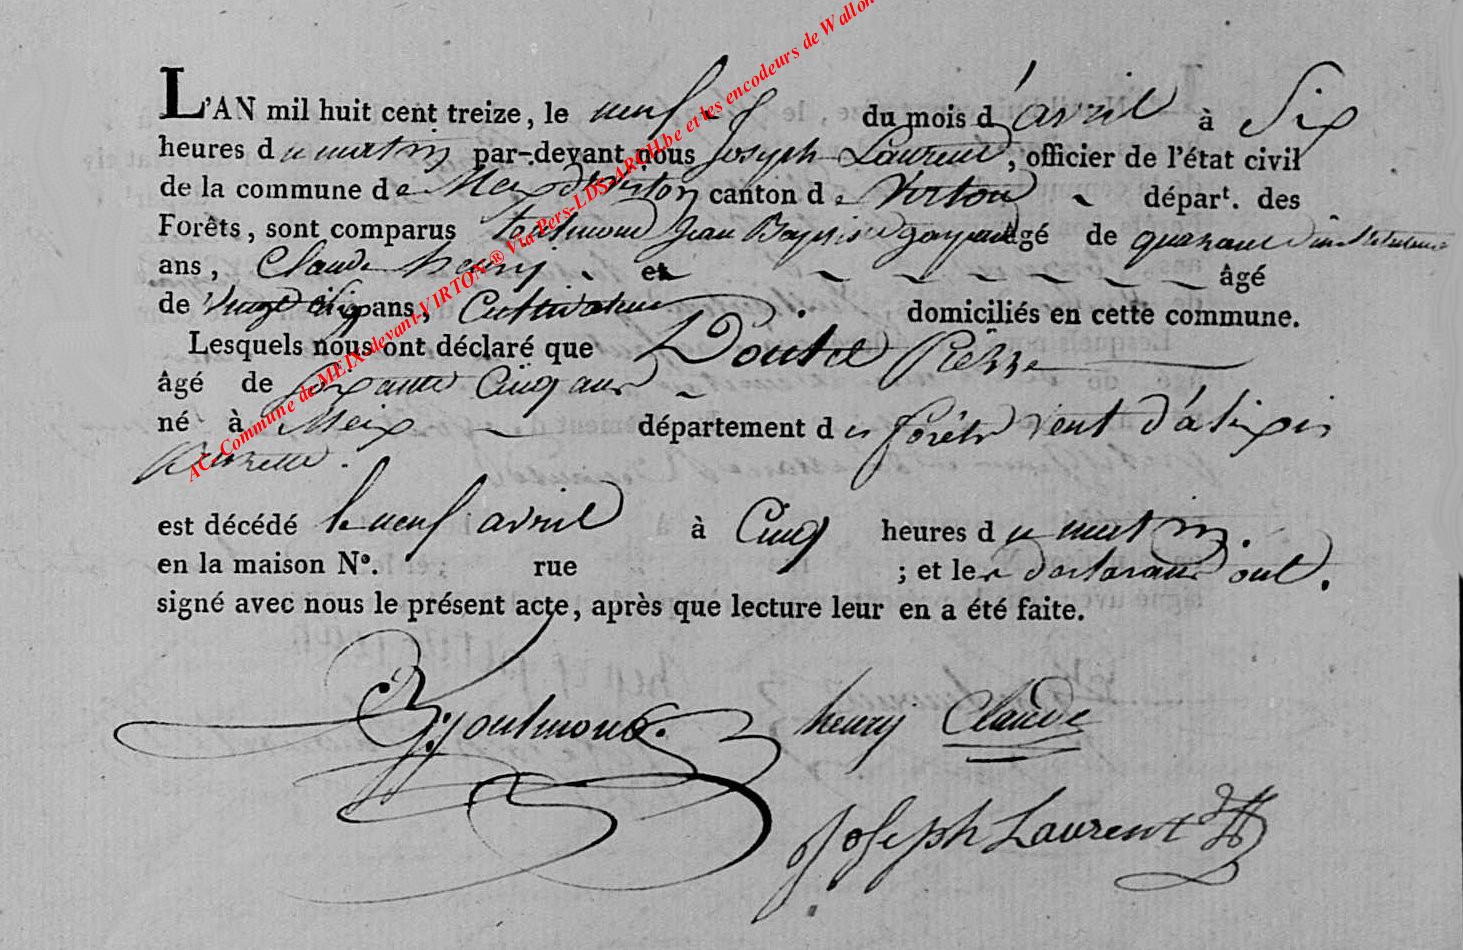 L'AN mil huit cent treize, le neuf du mois d'avril à Six
heures du matin par-devant nous Joseph Laurent, officier de l'état civil
de la commune de Meix dt Virton canton de Virton départ. des
Forêts, sont comparus Jean Baptiste âgé de quarante
ans, Claude henry et âgé
de cinq ans, Cultivateur domiciliés en cette commune.
Lesquels nous ont déclaré que Doutel Pierre
âgé de soixante Cinq ans
né à Meix département des forêts
est décédé le neuf avril à Cinq heures du matin.
en la maison N°. rue ; et les declarans ont.
signé avec nous le présent acte, après que lecture leur en a été faite.
henry Claude
Joseph Laurent
AC. Commune de MEIX-devant-VIRTON ® Via Pers-LDS-ARCH.be et les encodeurs de Wallon